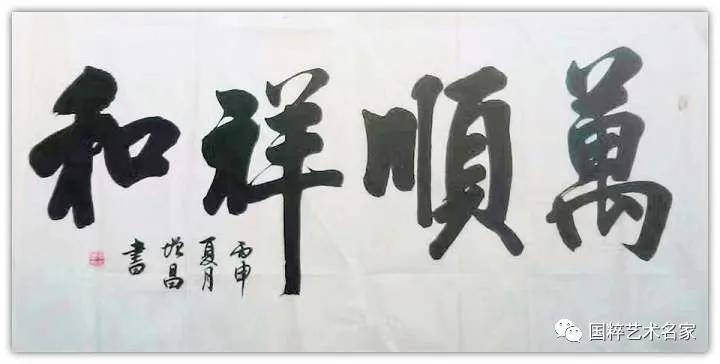 萬順祥和
丙申
夏月
增昌
書
国粹艺术名家